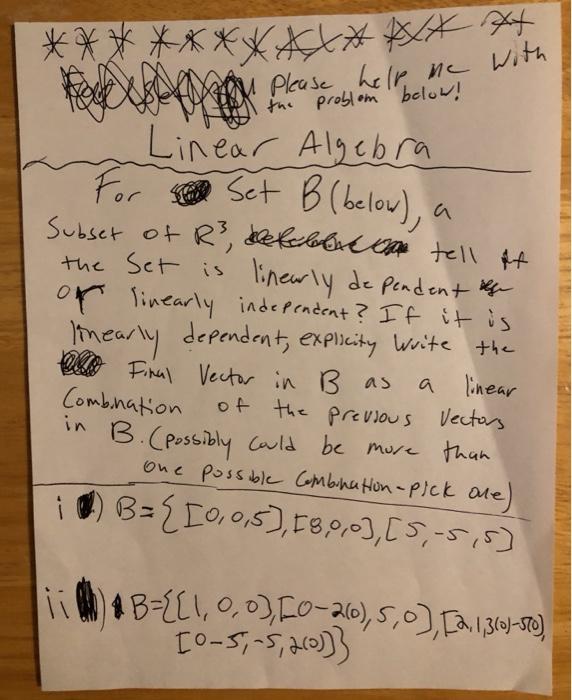 Please help me with
the problem below!
Linear Algebra
For Set B (below), a
Subset of R³, tell if
the Set is linearly dependent
or linearly independent? If it is
linearly dependent, explicity write the
Final Vector in B as a linear
Combination of the previous Vectors
in B. (possibly could be more than
one possible combination - pick one)
i ) B = { [0,0,5], [8,0,0], [5,-5,5]
ii ) B={[1, 0, 0], [0-2(0), 5, 0], [2,1,3(0)-5(0),
[0-5, -5, 2(0)]}